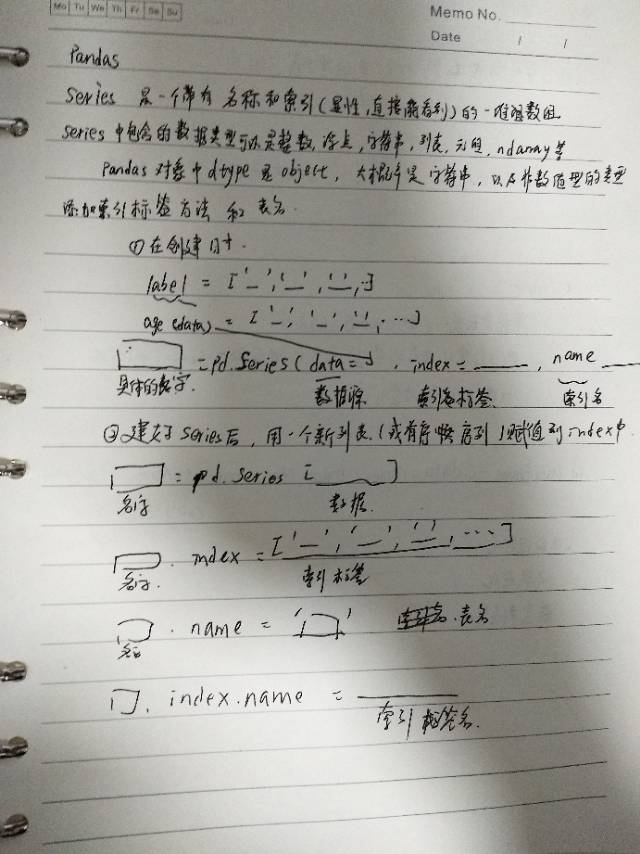 Mo Tu We Th Fr Sa Su
Memo No.
Date / /
Pandas
Series 是一个带有名称和索引(显性,直接能看到)的一维数组
Series中包含的数据类型可以是整数,浮点,字符串,列表,元组,ndarray等
Pandas 对象中dtype是object,大概率是字符串,以及非数值型的类型
添加索引标签方法和表名
①在创建时.
label = ['_','_','_',..]
age (data) = ['_','_','_',...]
=pd.Series(data= , index= , name
具体的名字. 数据源 索引标签 索引名
②建好Series后,用一个新列表(或有序序列)赋值到index中
= pd.Series [ ]
名字 数据
.index = ['_','_','_',...]
名字. 索引标签
.name = ' ' 表名
名字
.index.name =
索引标签名.